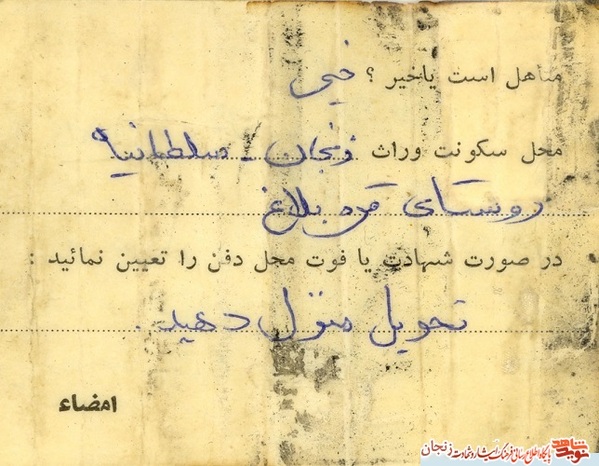 متأهل است یاخیر ؟ خیر
محل سکونت وراث زنجان - سلطانیه
روستای قره بلاغ
در صورت شهادت یا فوت محل دفن را تعیین نمائید :
تحویل منزل دهید .
امضاء
نوید شاهد پایگاه اطلاع رسانی فرهنگ ایثار و شهادت زنجان